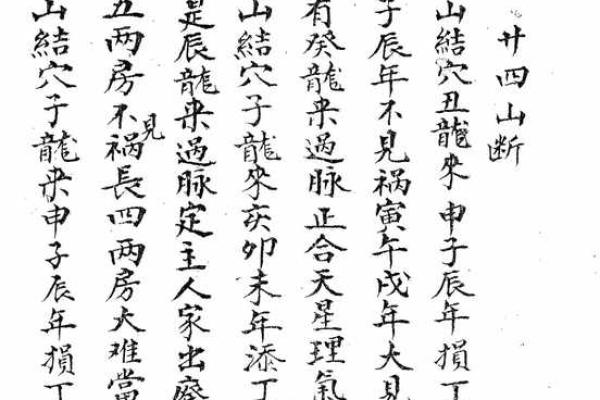 廿四山断
山結穴丑龍來申子辰年損丁
子辰年不見禍寅午戌年大見
有癸龍来過脉正合天星理氣
山結穴子龍來亥卯未年添丁
是辰龍来過脉定主人家出廢
丑两房不見禍長四两房大难當
山結穴子龍来申子辰年損丁